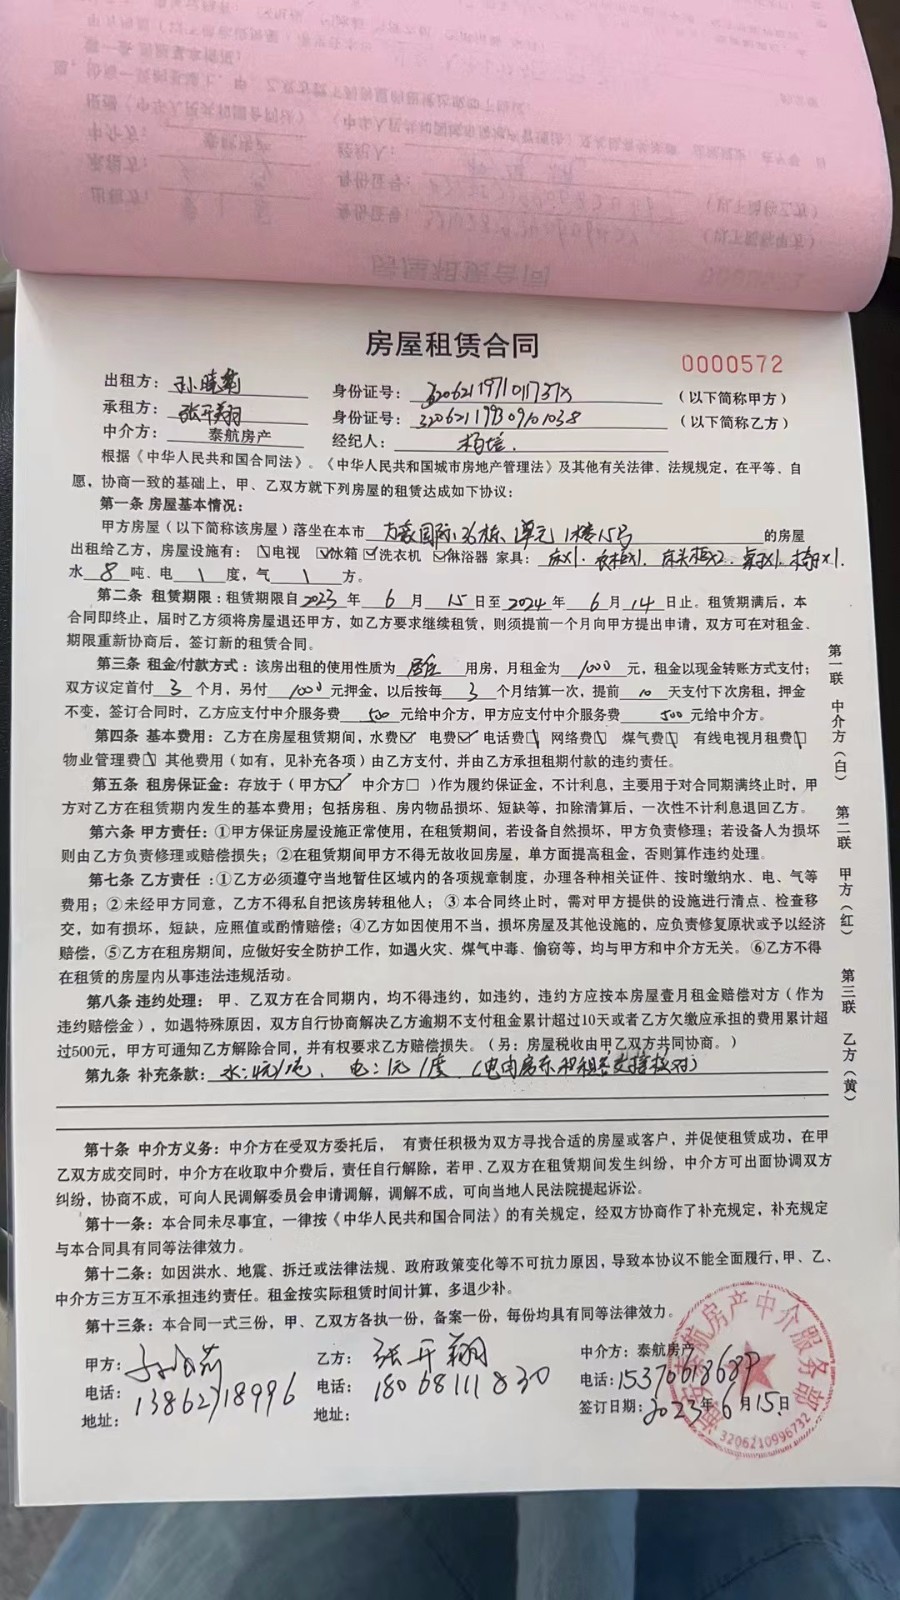 房屋租赁合同
0000572
出租方：孙晓莉 身份证号：32062119710117317X （以下简称甲方）
承租方：张开翔 身份证号：320621199309101038 （以下简称乙方）
中介方：泰航房产 经纪人：杨培.
根据《中华人民共和国合同法》。《中华人民共和国城市房地产管理法》及其他有关法律、法规规定，在平等、自
愿，协商一致的基础上，甲、乙双方就下列房屋的租赁达成如下协议：
第一条 房屋基本情况：
甲方房屋（以下简称该房屋）落坐在本市 万豪国际36栋 1单元 1楼15号 的房屋
出租给乙方，房屋设施有：电视 冰箱 洗衣机 淋浴器 家具：床x1. 衣柜x1. 床头柜x2. 桌子x1. 椅子x1.
水 8 吨、电 1 度，气 1 方。
第二条 租赁期限：租赁期限自2023年 6 月 15日至2024年 6月14日止。租赁期满后，本
合同即终止，届时乙方须将房屋退还甲方，如乙方要求继续租赁，则须提前一个月向甲方提出申请，双方可在对租金、
期限重新协商后，签订新的租赁合同。
第三条 租金/付款方式：该房出租的使用性质为 居住 用房，月租金为 1000 元，租金以现金转账方式支付；
双方议定首付 3 个月，另付 1000 元押金，以后按每 3 个月结算一次，提前 10 天支付下次房租，押金
不变，签订合同时，乙方应支付中介服务费 500 元给中介方，甲方应支付中介服务费 500 元给中介方。
第四条 基本费用：乙方在房屋租赁期间，水费☑ 电费☑ 电话费 网络费 煤气费 有线电视月租费
物业管理费 其他费用（如有，见补充各项）由乙方支付，并由乙方承担租期付款的违约责任。
第五条 租房保证金：存放于（甲方☑ 中介方□ ）作为履约保证金，不计利息，主要用于对合同期满终止时，甲
方对乙方在租赁期内发生的基本费用；包括房租、房内物品损坏、短缺等，扣除清算后，一次性不计利息退回乙方。
第六条 甲方责任：①甲方保证房屋设施正常使用，在租赁期间，若设备自然损坏，甲方负责修理；若设备人为损坏
则由乙方负责修理或赔偿损失；②在租赁期间甲方不得无故收回房屋，单方面提高租金，否则算作违约处理。
第七条 乙方责任 ：①乙方必须遵守当地暂住区域内的各项规章制度，办理各种相关证件、按时缴纳水、电、气等
费用；②未经甲方同意，乙方不得私自把该房转租他人；③ 本合同终止时，需对甲方提供的设施进行清点、检查移
交，如有损坏，短缺，应照值或酌情赔偿；④乙方如因使用不当，损坏房屋及其他设施的，应负责修复原状或予以经济
赔偿，⑤乙方在租房期间，应做好安全防护工作，如遇火灾、煤气中毒、偷窃等，均与甲方和中介方无关。⑥乙方不得
在租赁的房屋内从事违法违规活动。
第八条 违约处理： 甲、乙双方在合同期内，均不得违约，如违约，违约方应按本房屋壹月租金赔偿对方（作为
违约赔偿金），如遇特殊原因，双方自行协商解决乙方逾期不支付租金累计超过10天或者乙方欠缴应承担的费用累计超
过500元，甲方可通知乙方解除合同，并有权要求乙方赔偿损失。（另：房屋税收由甲乙双方共同协商。）
第九条 补充条款：水：4元/吨、 电：1元/度 （电由房东和租客直接核对）
第十条 中介方义务：中介方在受双方委托后， 有责任积极为双方寻找合适的房屋或客户，并促使租赁成功，在甲
乙双方成交同时，中介方在收取中介费后，责任自行解除，若甲、乙双方在租赁期间发生纠纷，中介方可出面协调双方
纠纷，协商不成，可向人民调解委员会申请调解，调解不成，可向当地人民法院提起诉讼。
第十一条：本合同未尽事宜，一律按《中华人民共和国合同法》的有关规定，经双方协商作了补充规定，补充规定
与本合同具有同等法律效力。
第十二条：如因洪水、地震、拆迁或法律法规、政府政策变化等不可抗力原因，导致本协议不能全面履行，甲、乙、
中介方三方互不承担违约责任。租金按实际租赁时间计算，多退少补。
第十三条：本合同一式三份，甲、乙双方各执一份，备案一份，每份均具有同等法律效力。
甲方：孙晓莉 乙方：张开翔 中介方：泰航房产
电话：13862718996 电话：18068111830 电话：15370618689
地址： 地址： 签订日期：2023年6月15日
第一联 中介方（白） 第二联 甲方（红） 第三联 乙方（黄）
海安泰航房产中介服务部
3206210996732